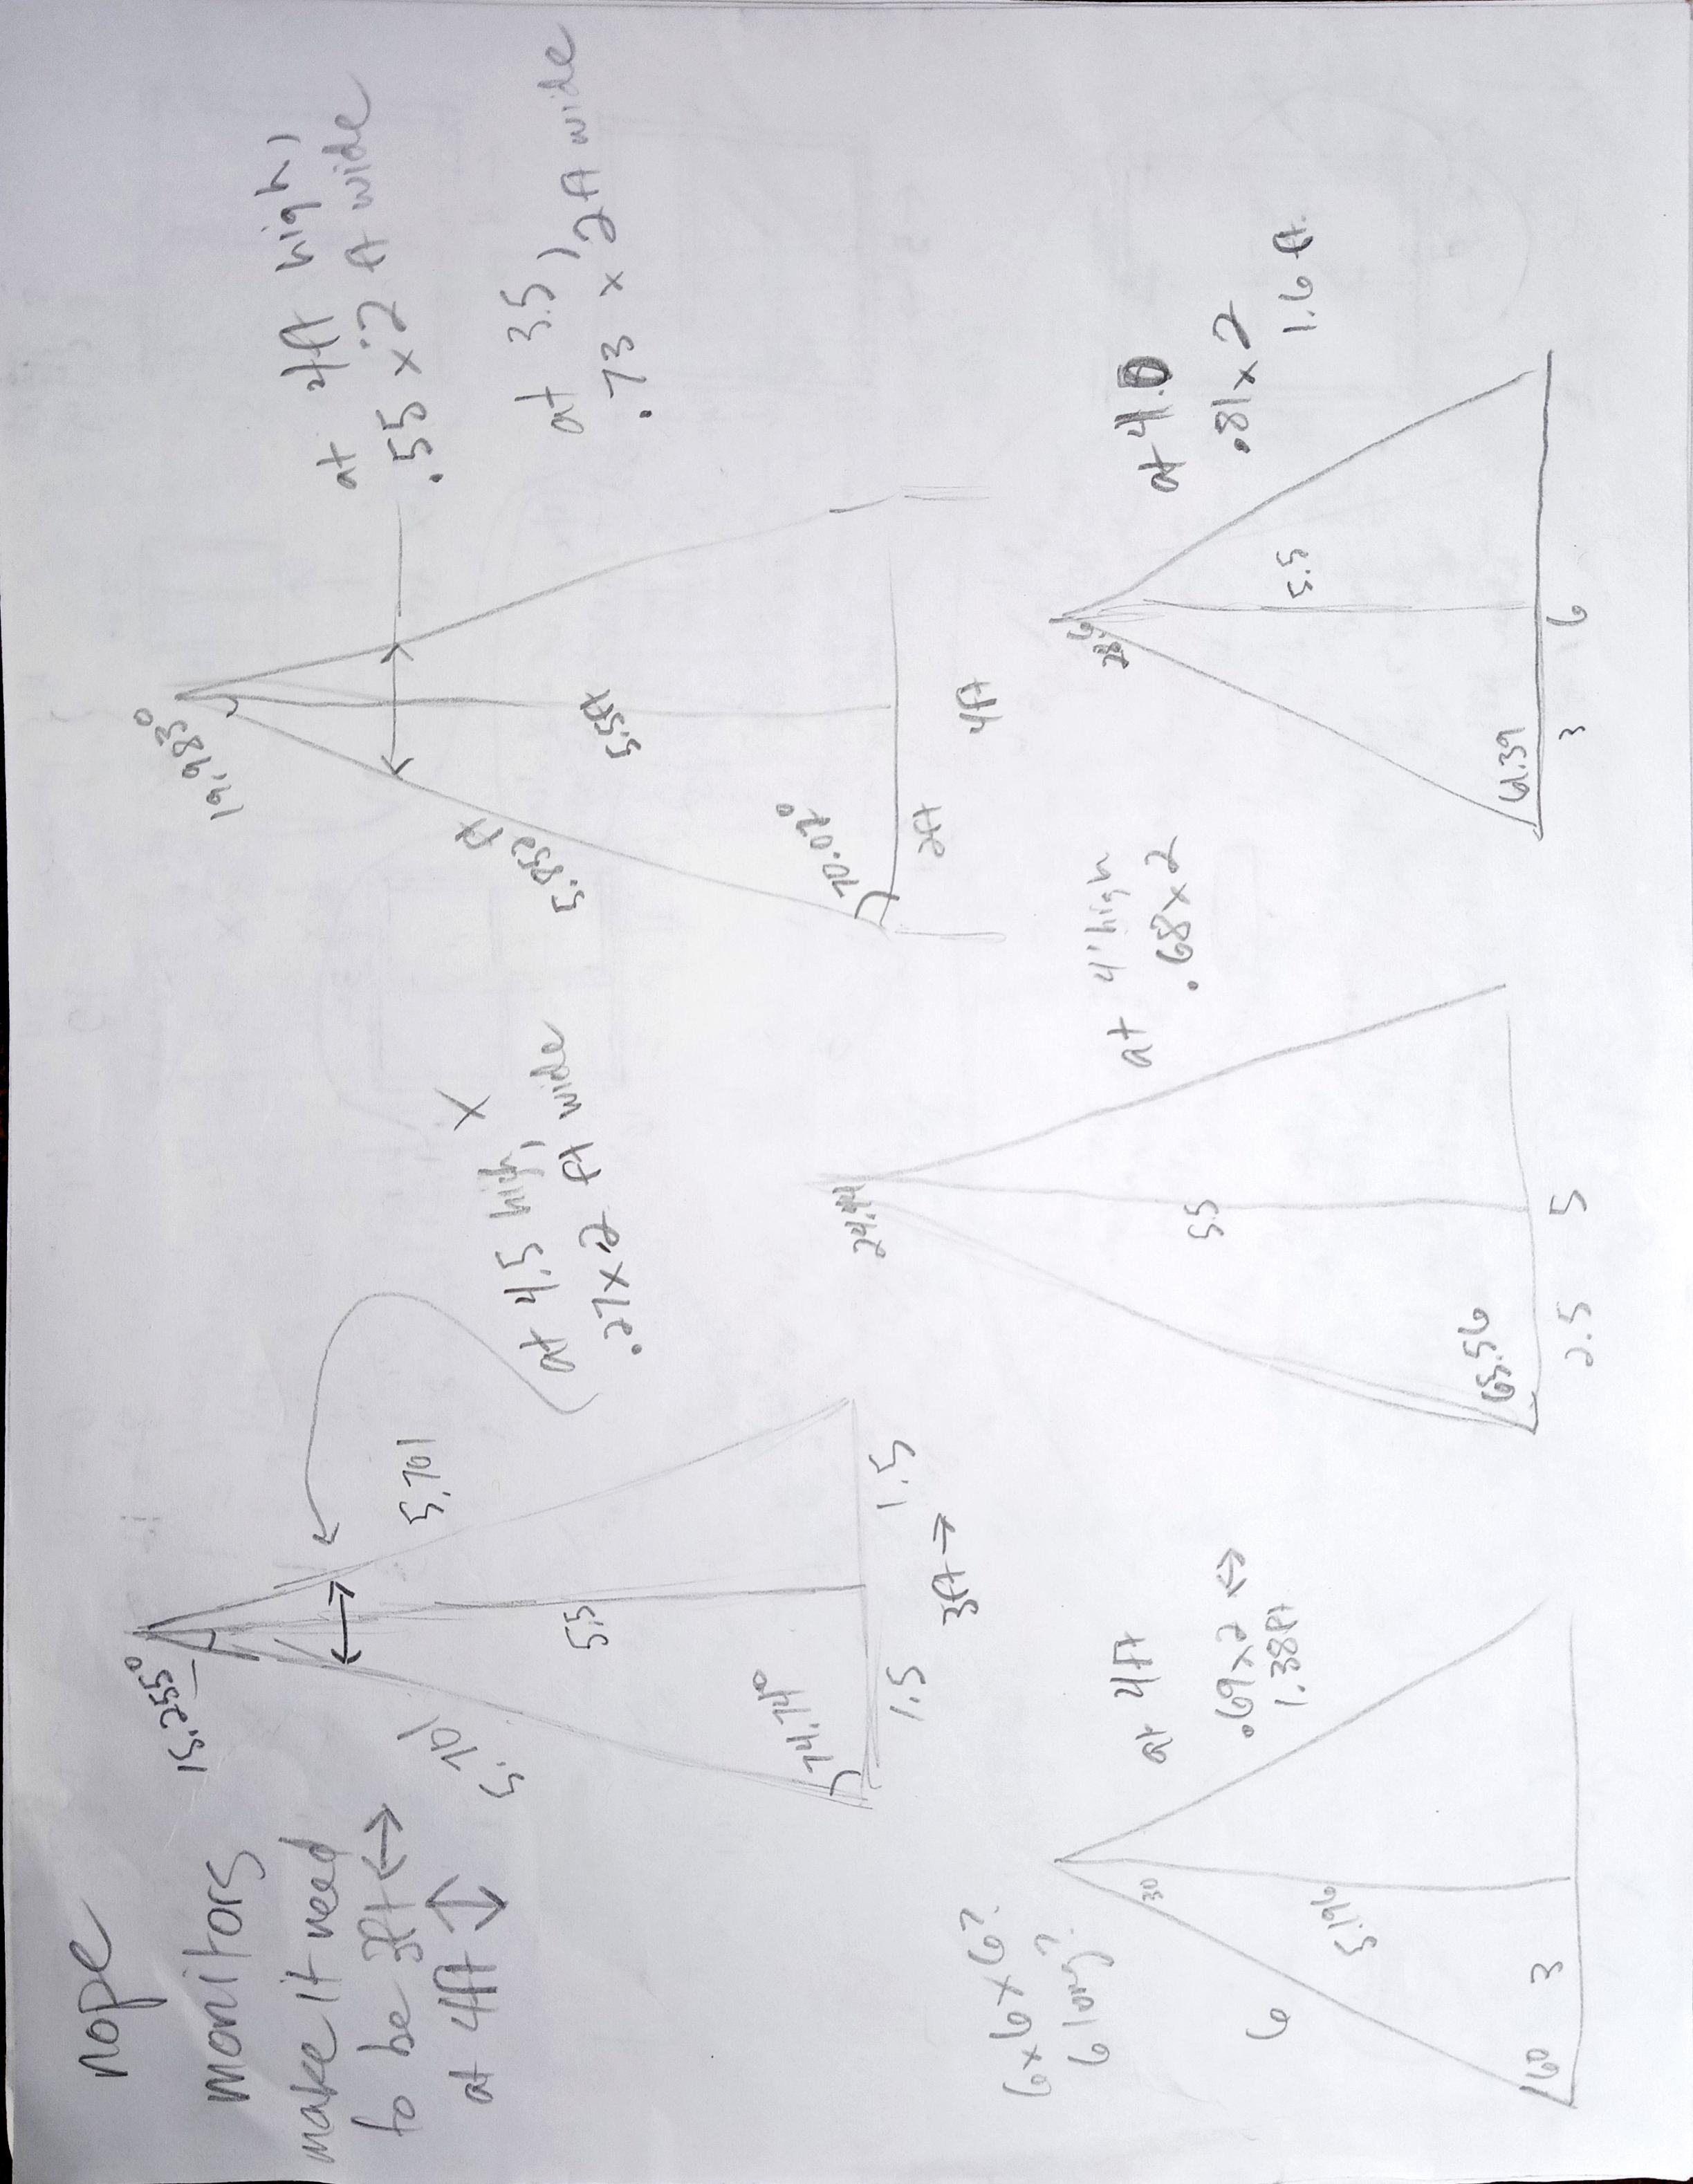 nope
monitors
make it need
to be 3ft ↔
at 4ft ↕
15.255°
5.701
5.701
5.5
74.74°
1.5
1.5
3ft →
at 4.5 high,
.27 x 2 ft wide
X
19.983°
5.852
ft
5.5ft
70.02°
2ft
4ft
at 4ft high,
.55 x 2 ft wide
at 3.5,
.73 x 2ft wide
6x6x6?
6 long?
30
6
5.196
60
3
at 4ft
.69x2 ↔
1.38ft
24.44
5.5
65.56
2.5
5
at 4' high
.68x2
28.6
5.5
61.39
3
6
at 4.0
.81x2
1.6 ft.